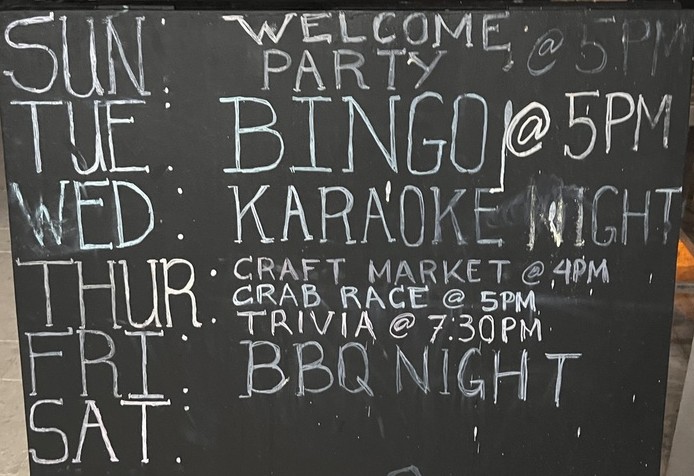 SUN: WELCOME PARTY @ 5PM
TUE: BINGO @ 5PM
WED: KARAOKE NIGHT
THUR: CRAFT MARKET @ 4PM
CRAB RACE @ 5PM
TRIVIA @ 7:30PM
FRI: BBQ NIGHT
SAT: